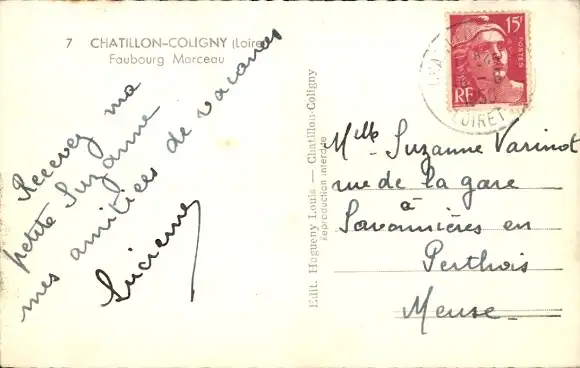 7 CHATILLON-COLIGNY (Loiret)
Faubourg Marceau
Recevez ma
petite Suzanne
mes amitiées de vacances
Lucienne
Edit. Hugueny Louis — Chatillon-Coligny
Reproduction interdite
15F
POSTES
RF
LOIRET
Mlle Suzanne Varinot
rue de la gare
à
Savonnières en
Perthois
Meuse